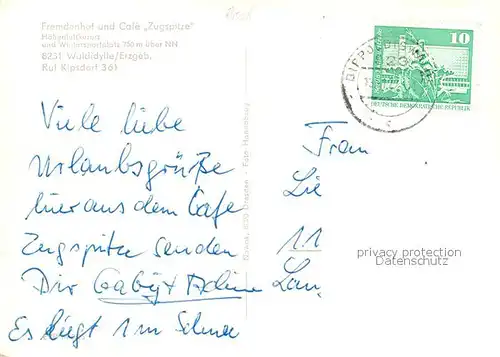 Fremdenhof und Café „Zugspitze"
Höhenluftkurort
und Wintersportplatz 750 m über NN
8231 Waldidylle/Erzgeb.
Ruf Kipsdorf 361
Viele liebe
Urlaubsgrüße
hier aus dem Cafe
Zugspitze senden
Dir Gaby +
Es liegt 1 m Schnee
10
DEUTSCHE DEMOKRATISCHE REPUBLIK
Frau
Lie
11
Lau
privacy protection
Datenschutz